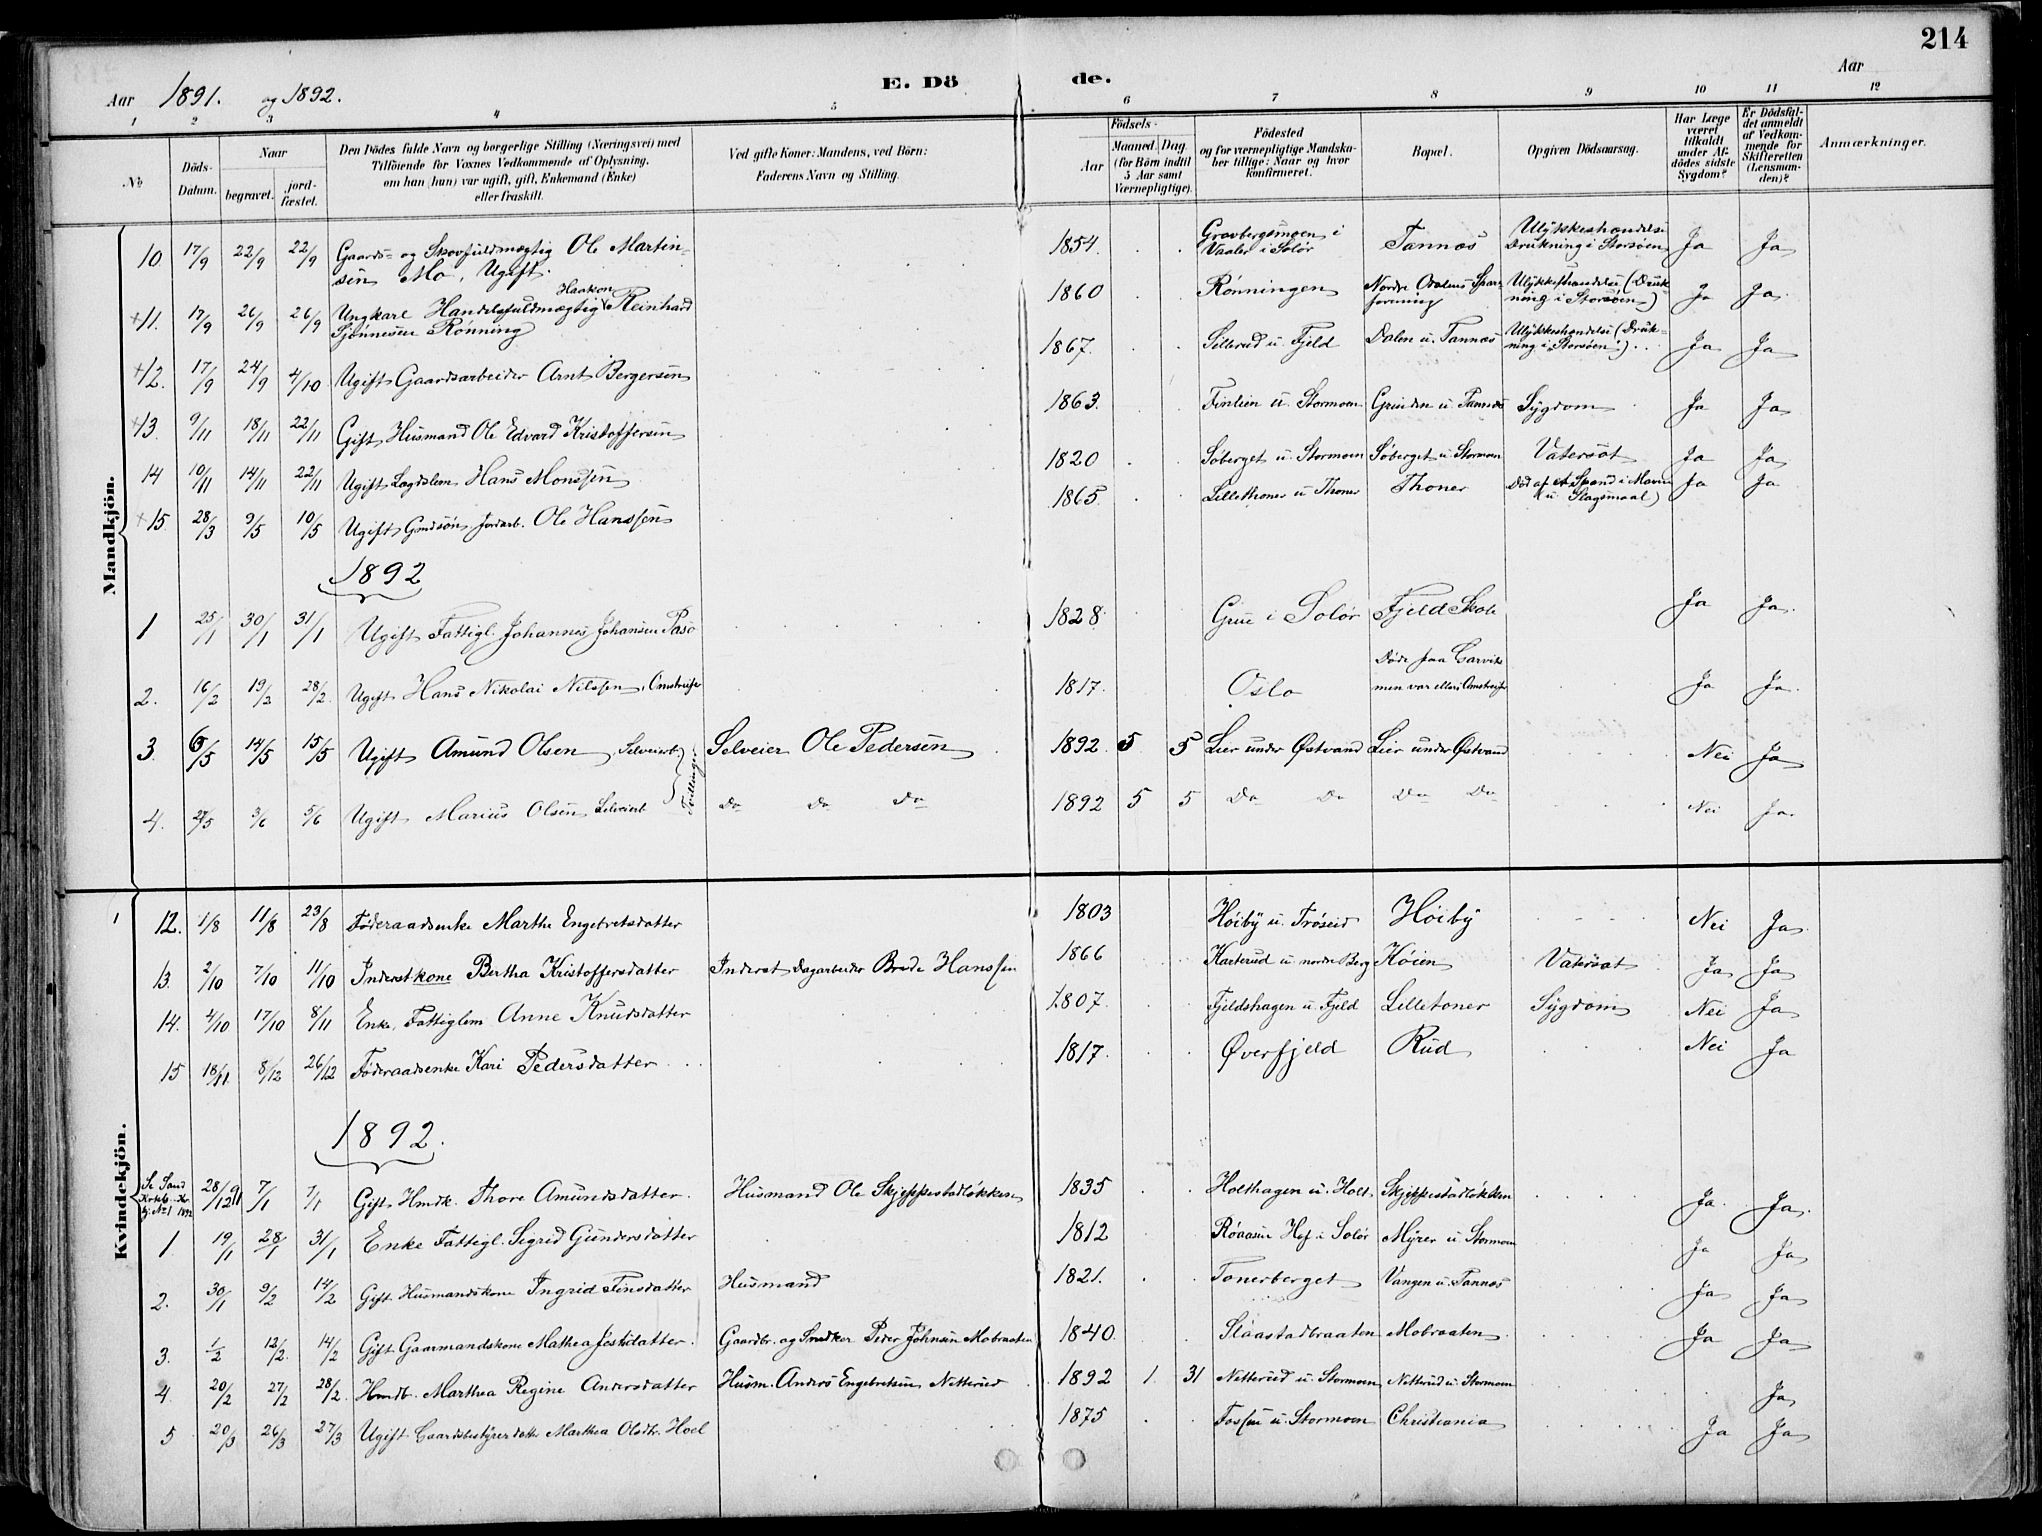 214
Aar 1891. og 1892. E. Dö de. Aar
1 2 3 4 5 6 7 8 9 10 11 12
No
Döds-Datum.
Naar
begravet. jordfæstet.
Den Dödes fulde Navn og borgerlige Stilling (Næringsvei) med
Tilföiende for Voxnes Vedkommende af Oplysning,
om han (hun) var ugift, gift, Enkemand (Enke)
eller fraskilt.
Ved gifte Koner: Mandens, ved Börn:
Faderens Navn og Stilling.
Födsels-
Aar Maaned. Dag.
(for Börn indtil
5 Aar samt
Værnepligtige).
Födested
og for værnepligtige Mandskaber tillige: Naar og hvor
konfirmeret.
Bopæl.
Opgiven Dödsaarsag.
Har Læge været tilkaldt under Afdödes sidste Sygdom?
Er Dödsfaldet anmeldt af Vedkommende for Skifteretten (Lensmanden)?
Anmærkninger.
Mandkjön.
10 17/9 22/9 22/9 Gaards- og Skovfuldmægtig Ole Martinsen Mo, Ugift. 1854. Gravbergsmoen i Vaaler i Solör Tannæs Ulykkeshændelse Drukning i Storsöen Ja Ja
+11. 17/9 26/9 26/9 Ungkarl Handelsfuldmægtig Haakon Reinhard Sjönnesen Rönning 1860 Rönningen Nordre Odalens Sparforening Ulykkeshændelse (Drukning i Storsöen) Ja Ja.
+12. 17/9 24/9 4/10 Ugift Gaardsarbeider Arnt Bergersen 1867. Sillerud u. Fjeld Dalen u. Tannæs Ulykkeshændelse (Drukning i Storsöen). Ja Ja
+13. 9/11 18/11 22/11 Gift Husmand Ole Edvard Kristoffersen 1863. Finlien u. Stormoen Grinden u. Tannæs Sygdom Ja Ja
14 10/11 14/11 22/11 Ugift Lægdslem Hans Monssen 1820 Söberget u. Stormoen Söberget u. Stormoen Vatersot Ja Ja
+15. 28/3 9/5 10/5 Ugift Gmdsön Jordarb. Ole Hanssen 1865 Lillethoner u Thoner Thoner Död af et Spænd i Maven (u. Slagsmaal) Ja Ja
1892
1 25/1 30/1 31/1 Ugift Fattigl. Johannes Johansen Pasö 1828. Grue i Solör Fjeld Skole Ja Ja.
2. 16/2 19/2 28/2. Ugift Hans Nikolai Nilssen, Omstreifer 1817. Oslo Döde paa Garvik men var ellers Omstreifer Ja Ja.
3. 6/5 14/5 15/5 Ugift Amund Olsen, Selveierb. Selveier Ole Pedersen 1892. 5 5 Lier under Østvand Lier under Østvand Nei Ja
Tvillinger.
4. 27/5 3/6 5/6 Ugift Marius Olsen Selveierb Do Do Do 1892 5 5 Do Do Do Do Nei Ja.
Kvindekjön.
12. 1/8 11/8 23/8 Föderaadsenke Marthe Engebretsdatter 1803 Höiby u. Tröseid Höiby Nei Ja.
13. 2/10 7/10 11/10 Inderstkone Bertha Kristoffersdatter Inderst Dagarbeider Brede Hanssen 1866 Karterud u nordre Berg Köien Vatersot Ja Ja
14. 4/10 17/10 8/11 Enke, Fattiglem Anne Knudsdatter 1807. Fjeldshagen u. Fjeld Lilletoner Sygdom Nei Ja
15 18/11 8/12 26/12 Föderaadsenke Kari Pedersdatter 1817. Øverfjeld Rud Nei Ja
1892.
Se Sand Kirkeb. No 1 1892 28/12 91 7/1 7/1 Gift Hmdk. Thore Amundsdatter. Husmand Ole Skjeppestadlökken 1835 Holthagen u. Holt Skjeppestadlökken Ja. Ja.
1. 19/1 28/1 31/1 Enke Fattigl. Sigrid Gundersdatter 1812 Röaasen Hof i Solör Myrer u. Stormoen Ja Ja
2. 30/1 9/2 14/2 Gift Husmandskone Ingrid Finsdatter Husmand 1821. Tonerberget Vangen u. Tannæs Ja Ja
3. 1/2 12/2. 14/2 Gift Gaarmandskone Mathea Eskildatter. Gaardbr. og Snedker Peder Johnsen Mobraaten 1840. Slaastadbraaten Mobraaten Ja Ja
4. 20/2 27/2 28/2. Hmdb. Marthea Regine Andersdatter Husm. Anders Engebretsen Netterud 1892 1. 31 Netterud u. Stormoen Netterud u. Stormoen Ja
5 20/3 26/3 27/3 Ugift Gaardsbestyrerdatte Marthea Olsdtr. Hoel 1875 Fossen u. Stormoen Christiania Ja Ja